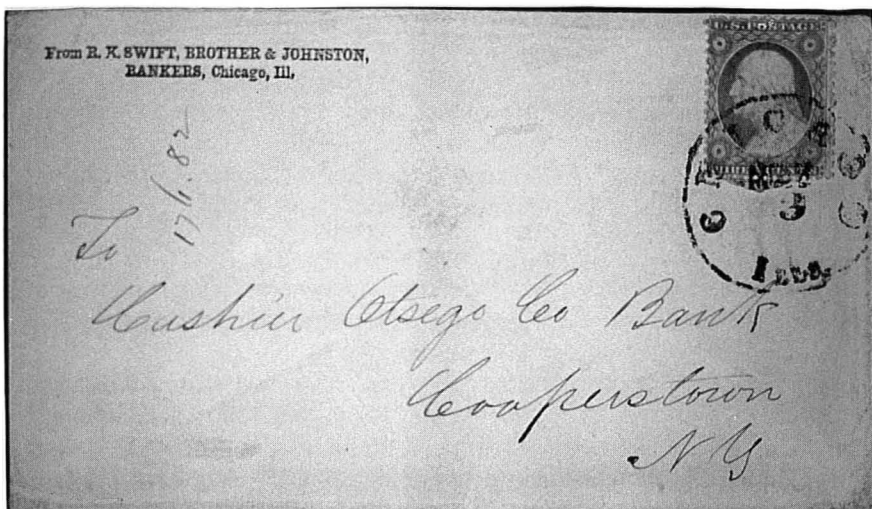 From R. K. SWIFT, BROTHER & JOHNSTON,
BANKERS, Chicago, Ill.
U.S. POSTAGE
CHICAGO
3
ILLS.
To
Cashier Otsego Co Bank
Cooperstown
NY